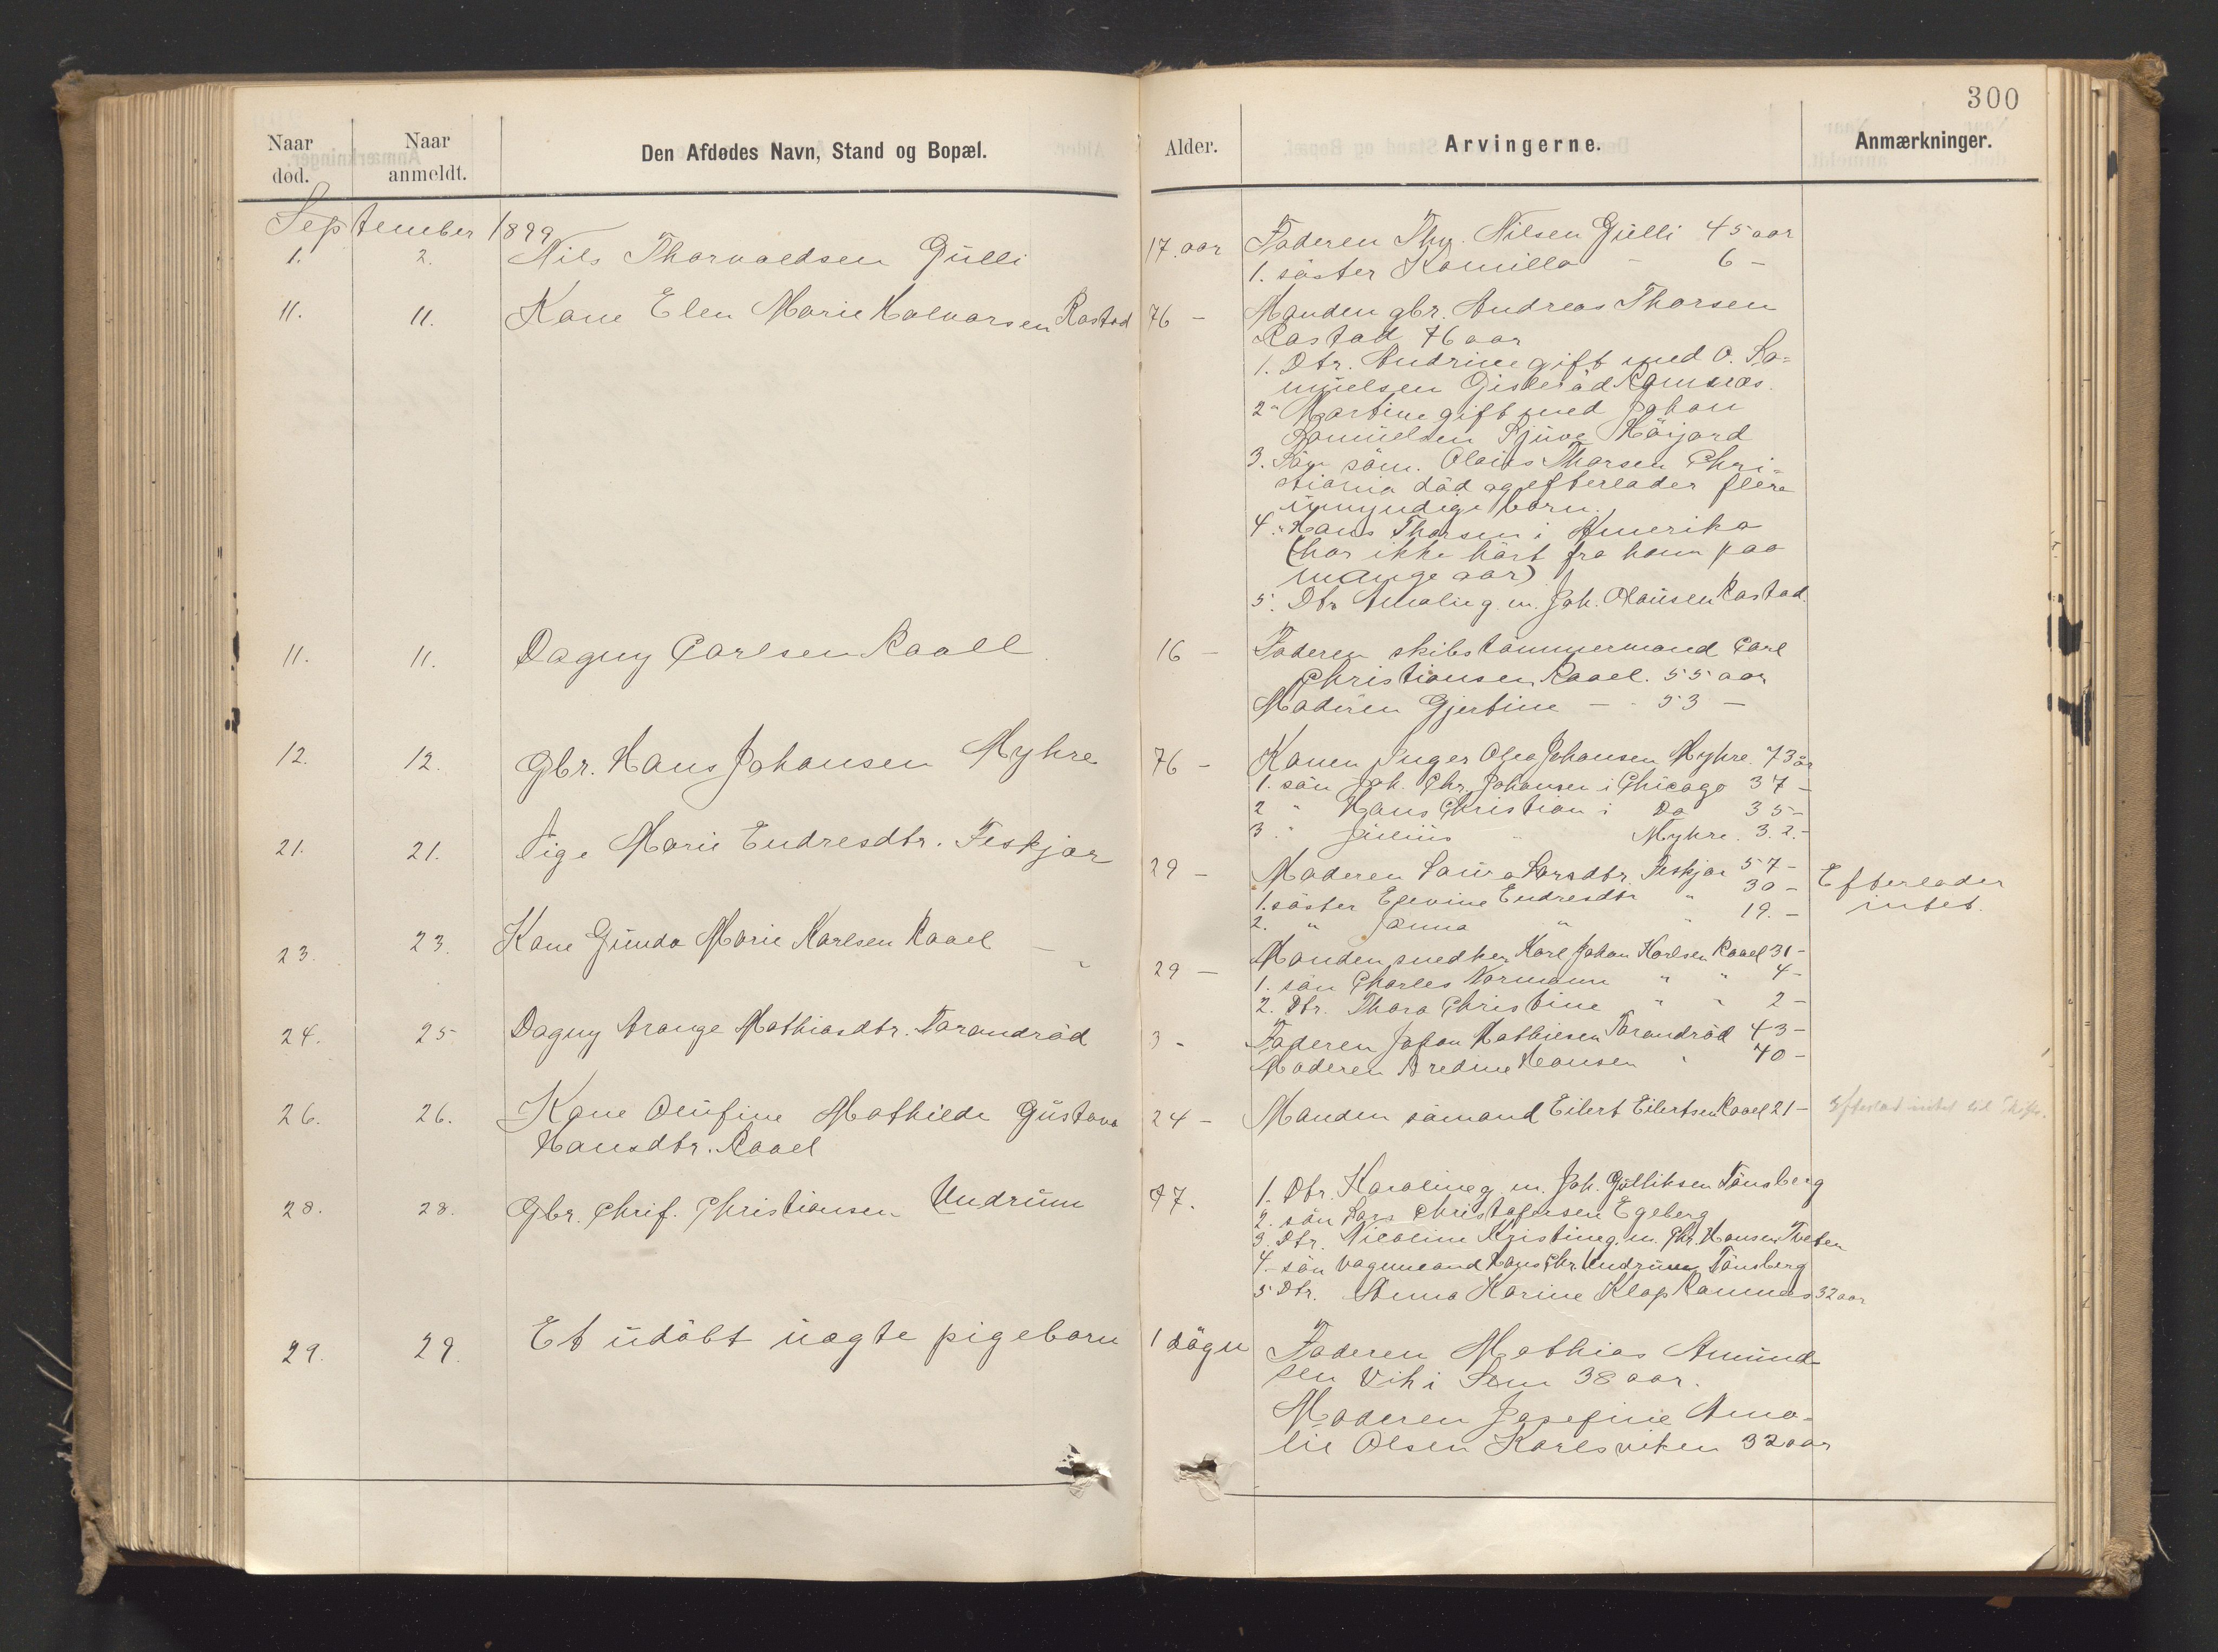 300
Naar død.
Naar anmeldt.
Den Afdødes Navn, Stand og Bopæl.
Alder.
Arvingerne.
Anmærkninger.
September 1899
1. 2. Nils Thorvaldsen Gulli 17 aar Faderen Thv. Nilsen Gulli 45 aar
1. søster Kamilla - 6 -
11. 11. Kone Elen Marie Halvorsen Rastad 76 - Manden gbr. Andreas Thorsen
Rastad 76 aar
1. Dtr. Andrine gift med O. Sa=
muelsen Giskerød Ramnæs.
2 " Martine gift med Johan
Samuelsen Skjuve Høijord
3. Søn søm. Olaus Thorsen Chri=
stiania død og efterlader flere
umyndige børn.
4. " Hans Thorsen i Amerika
(har ikke hørt fra ham paa
mange aar)
5. Dtr Amalie g. m. Joh. Olausen Rastad.
11. 11. Dagny Carlsen Raael 16 - Faderen skibstømmermand Carl
Christiansen Raael. 55 aar
Moderen Gjertine - - 53 -
12. 12. Gbr. Hans Johansen Myhre 76 - Konen Inger Olea Johansen Myhre. 73 år
1. søn Joh. Chr. Johansen i Chicago 37 -
2 " Hans Christian i Do 35 -
3. " Julius " Myhre. 32. -
21. 21. Pige Marie Endresdtr. Feskjær 29 - Moderen Laura Larsdtr. Feskjær 57 - Efterlader
1. søster Elevine Endresdtr " 30 - intet.
2. " Janna " " 19. -
23. 23. Kone Gunda Marie Karlsen Raael - 29 - Manden snedker Karl Johan Karlsen Raael 31 -
1. søn Charles Normann " " 4 -
2. Dtr. Thora Christine " " 2 -
24. 25 Dagny Arange Mathiasdtr. Farandrød 3 - Faderen Johan Mathiesen Farandrød 43 -
Moderen Bredine Hansen " 40 -
26. 26. Kone Olufine Mathilde Gustava 24 - Manden sømand Eilert Eilertsen Raael 21 - Efterlod intet til Skifte.
Hansdtr. Raael
28. 28. Gbr. Chrif. Christiansen Undrum 77. 1. Dtr. Karoline g. m. Joh. Gulliksen Tønsberg
2. søn Lars Christofersen Egeberg
3. Dtr. Nicoline Kristine g. m. Chr. Hansen Tveten
4 - søn vognmand Hans Chr. Undrum Tønsberg
5 Dtr. Anna Karine Klop Ramnæs 32 aar
29. 29. Et udøbt uægte pigebarn 1 døgn Faderen Mathias Amund-
sen Vik i Sem 38 aar.
Moderen Josefine Ama=
lie Olsen Karlsviken 32 aar